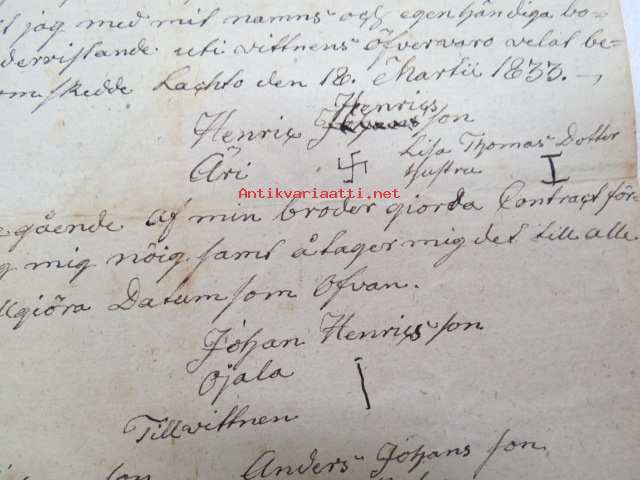 t jag med mit namns och egenhändiga bo=
dervistande uti vittnens öfvervaro velat be-
om skedde Lachto den 18. Martii 1833.
Henrics
Henric Johansson
Äri Lisa Thomas Dotter
hustru
Antikvariaatti.net
e gående af min broder giorda Contract för-
g mig nöig samt åtager mig det till alle
llgiöra Datum som Ofvan.
Johan Henricsson
Ojala
Till vittnen
son Anders Johansson